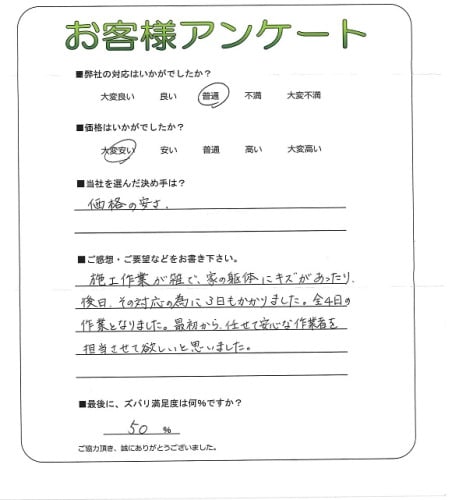 お客様アンケート
■弊社の対応はいかがでしたか?
大変良い 良い 普通 不満 大変不満
■価格はいかがでしたか?
大変安い 安い 普通 高い 大変高い
■当社を選んだ決め手は?
価格の安さ.
■ご感想・ご要望などをお書き下さい。
施工作業が雑で、家の躯体にキズがあったり、
後日、その対応の為に3日もかかりました。全4日の
作業となりました。最初から、任せて安心な作業者を
担当させて欲しいと思いました。
■最後に、ズバリ満足度は何%ですか?
50 %
ご協力頂き、誠にありがとうございました。